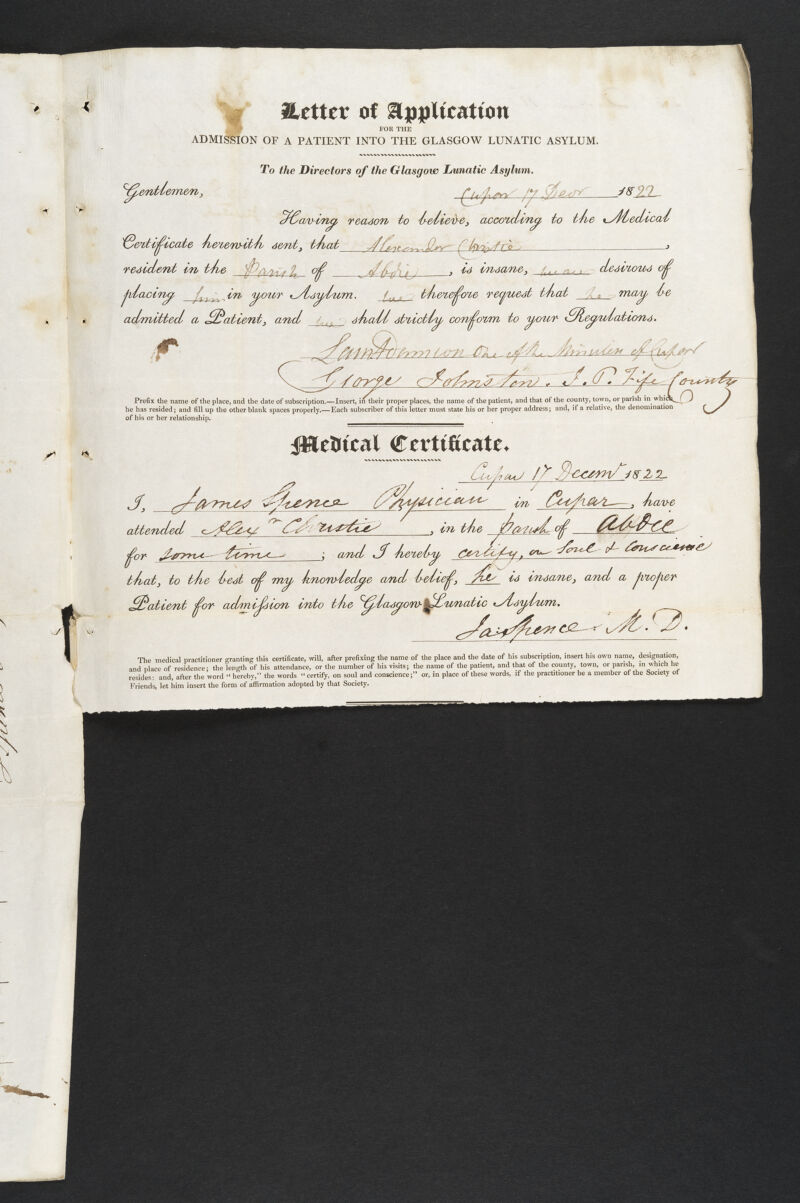 Letter of Application
FOR THE
ADMISSION OF A PATIENT INTO THE GLASGOW LUNATIC ASYLUM.
To the Directors of the Glasgow Lunatic Asylum.
Gentlemen, Cupar 17 Decr 1822
Having reason to believe, according to the Medical
Certificate herewith sent, that Alexander Christie,
resident in the Parish of Abdie, is insane, we are desirous of
placing him in your Asylum. we therefore request that he may be
admitted a Patient, and we shall strictly conform to your Regulations.
one of the Ministers of Cupar
George Johnston. J. P. Fife County
Prefix the name of the place, and the date of subscription.—Insert, in their proper places, the name of the patient, and that of the county, town, or parish in which
he has resided; and fill up the other blank spaces properly.—Each subscriber of this letter must state his or her proper address; and, if a relative, the denomination
of his or her relationship.
Medical Certificate.
Cupar 17 Decemr 1822
I, James Spence Physician in Cupar, have
attended Alexr Christie, in the Parish of Abdie
for some time; and I hereby certify, on Soul & Conscience
that, to the best of my knowledge and belief, he is insane, and a proper
Patient for admission into the Glasgow Lunatic Asylum.
Ja: Spence. M. D.
The medical practitioner granting this certificate, will, after prefixing the name of the place and the date of his subscription, insert his own name, designation,
and place of residence; the length of his attendance, or the number of his visits; the name of the patient, and that of the county, town, or parish, in which he
resides: and, after the word "hereby," the words "certify, on soul and conscience;" or, in place of these words, if the practitioner be a member of the Society of
Friends, let him insert the form of affirmation adopted by that Society.